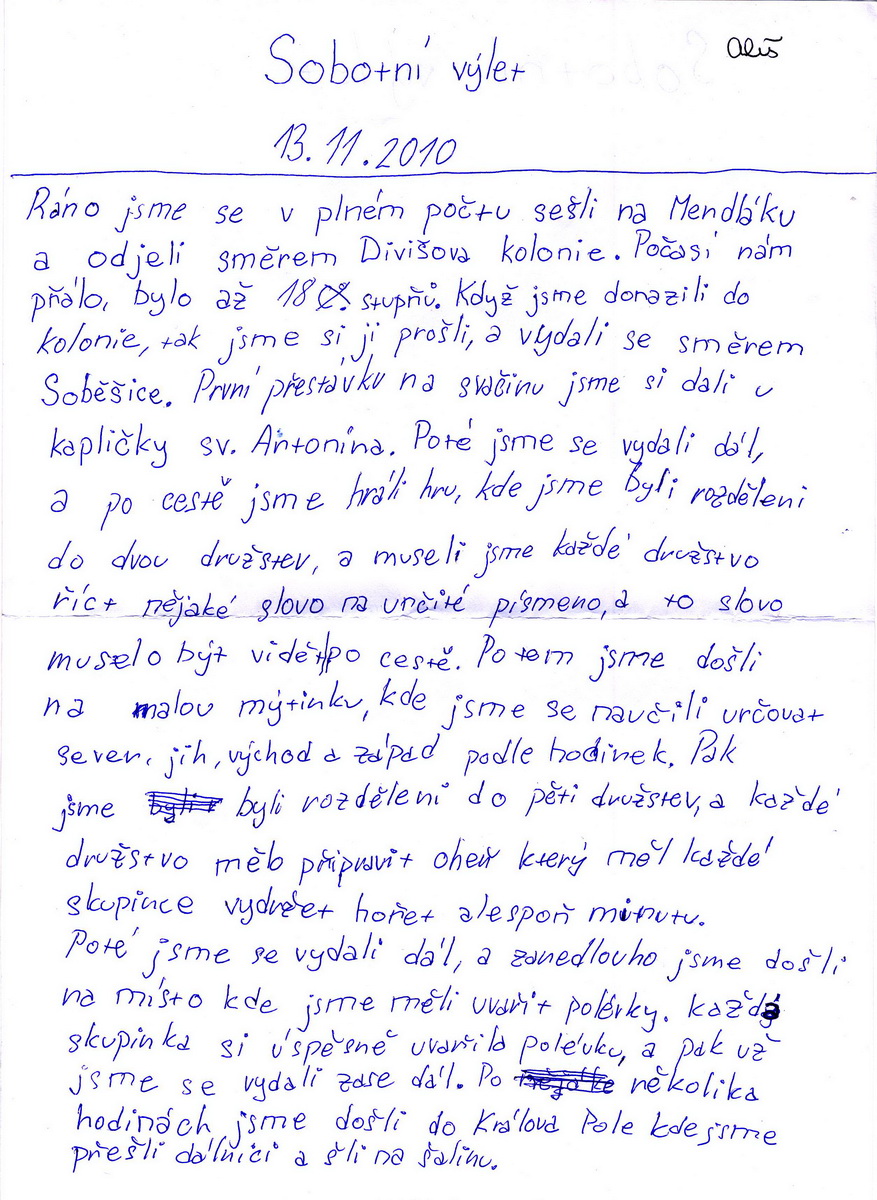 Sobotní výlet
Ališ
13.11.2010
Ráno jsme se v plném počtu sešli na Mendláku
a odjeli směrem Divišova kolonie. Počasí nám
přálo, bylo až 18 stupňů. Když jsme dorazili do
kolonie, tak jsme si ji prošli, a vydali se směrem
Soběšice. První přestávku na svačinu jsme si dali u
kapličky sv. Antonína. Poté jsme se vydali dál,
a po cestě jsme hráli hru, kde jsme byli rozděleni
do dvou družstev, a museli jsme každé družstvo
říct nějaké slovo na určité písmeno, a to slovo
muselo být vidět po cestě. Potom jsme došli
na malou mýtinku, kde jsme se naučili určovat
sever, jih, východ a západ podle hodinek. Pak
jsme byli rozděleni do pěti družstev, a každé
družstvo mělo připravit oheň který měl každé
skupince vydržet hořet alespoň minutu.
Poté jsme se vydali dál, a zanedlouho jsme došli
na místo kde jsme měli uvařit polévky. každá
skupinka si úspěsně uvařila polévku, a pak už
jsme se vydali zase dál. Po několika
hodinách jsme došli do Králova Pole kde jsme
přešli dálnici a šli na šalinu.